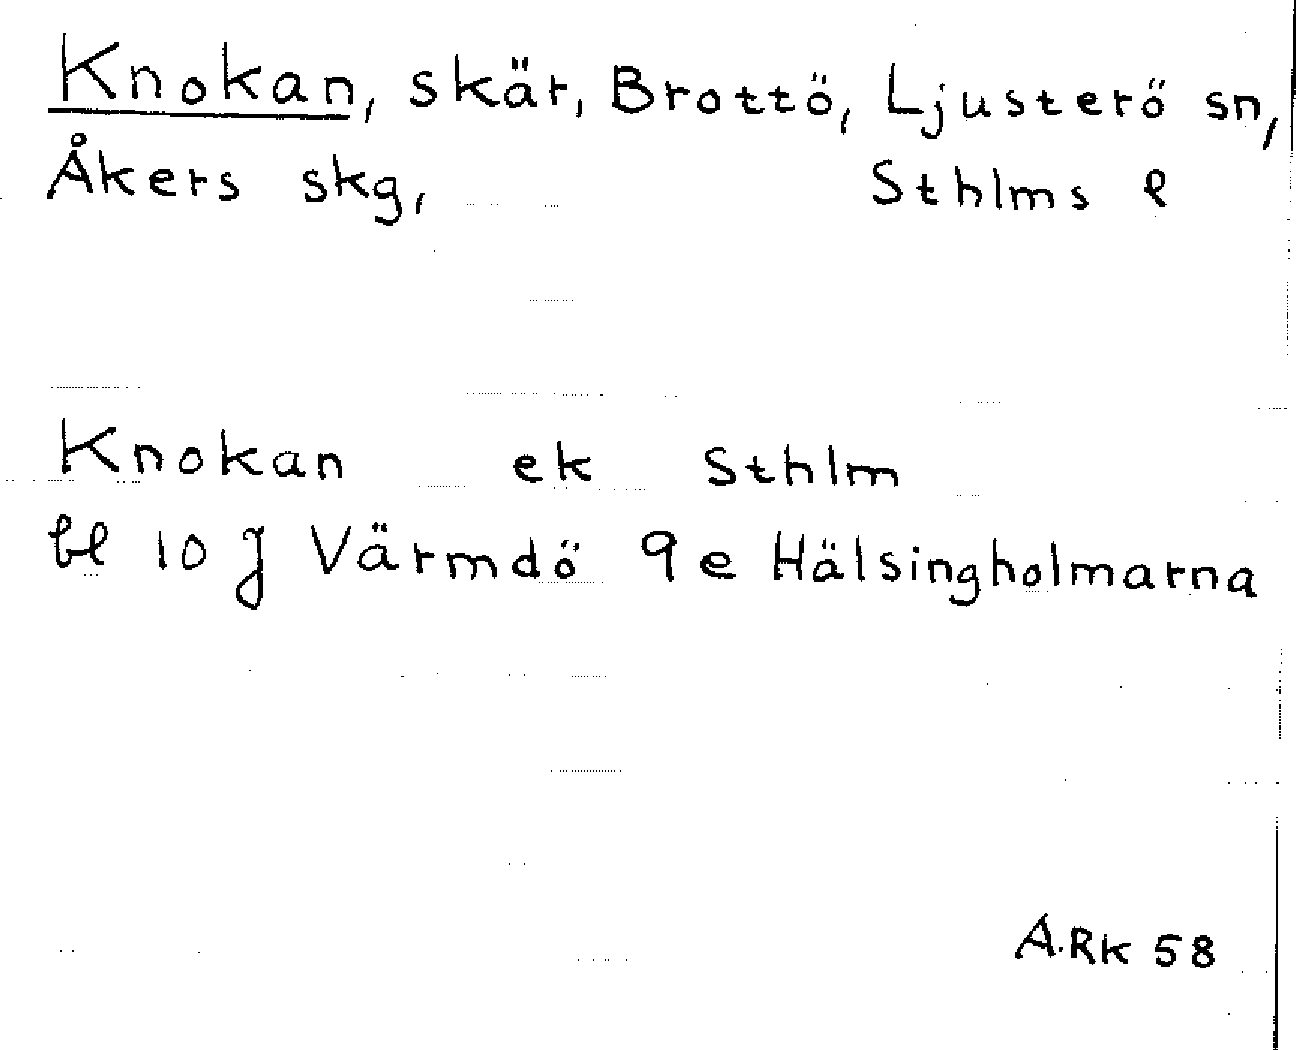 Knokan, skär, Brottö, Ljusterö sn,
Åkers skg, Sthlms l
Knokan ek Sthlm
bl 10 J Värmdö 9e Hälsingholmarna
A.RK 58